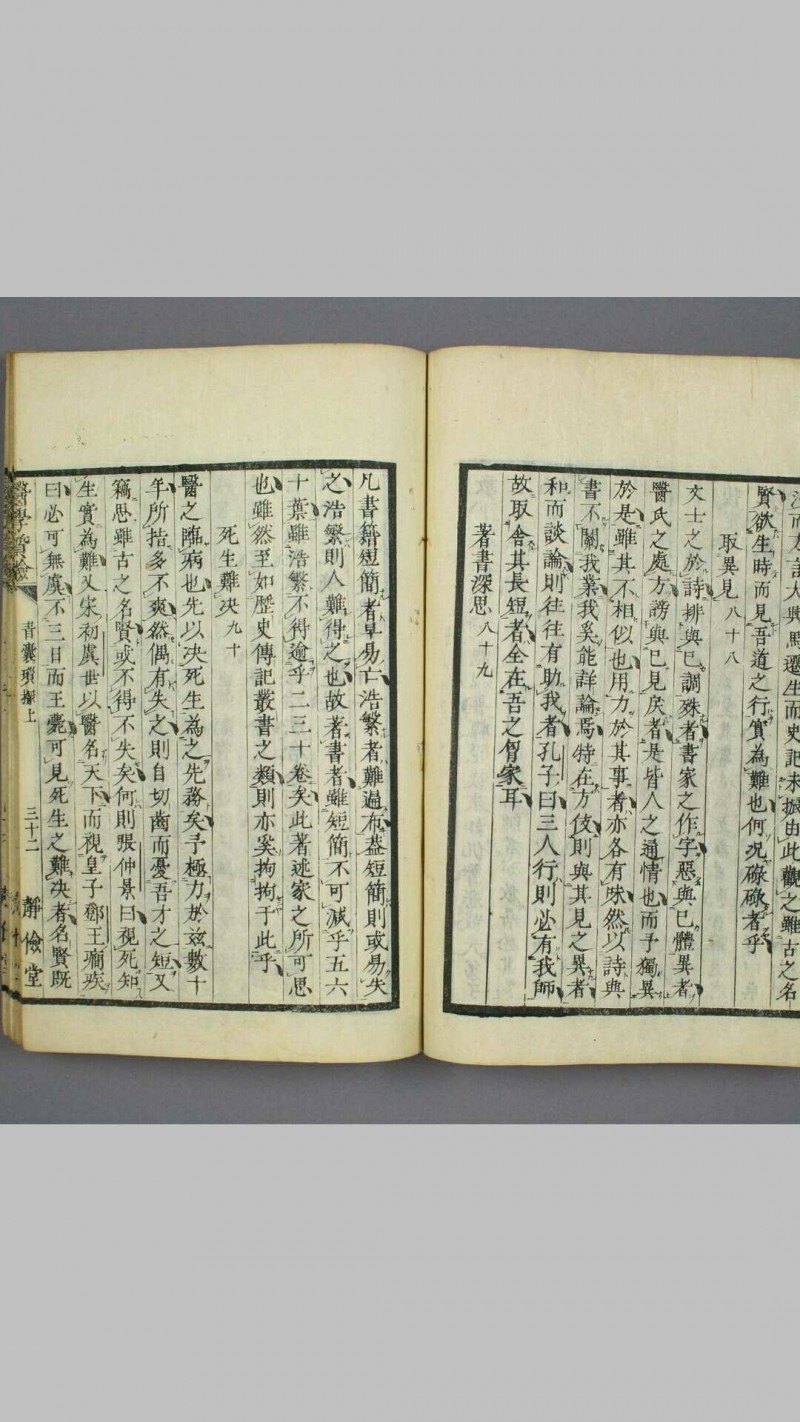 法而方言大興馬遷生而史記未振由此觀之雖古之名
賢欲生時而見吾道之行實為難也何况碌碌者乎
取異見 八十八
文士之於詩排與已調殊者書家之作字惡與已體異者
醫氏之處方謗與已見戾者是皆人之通情也而予獨異
於是雖其不相似也用力於其事者亦各有味然以詩與
書不關我業我奚能詳論焉特在方伎則與其見之異者
和而談論則往往有助我者孔子曰三人行則必有我師
故取舍其長短者全在吾之胷家耳
著書深思 八十九
凡書籍短簡者早易亡浩繁者難遍布蓋短簡則或易失
之浩繁則人難得之也故著書者雖短簡不可減乎五六
十葉雖浩繁不得逾乎二三十卷矣此著述家之所可思
也雖然至如歷史傳記叢書之類則亦奚拘拘于此乎
死生難决 九十
醫之臨病也先以决死生為之先務矣予極力於玆數十
年所指多不爽然偶有失之則自切齒而憂吾才之短又
竊思雖古之名賢或不得不失矣何則張仲景曰視死知
生實為難又宋初虞世以醫名天下而視皇子鄧王癇疾
曰必可無虞不三日而王薨可見死生之難决者名賢既
青囊瑣探上 三十二 靜儉堂